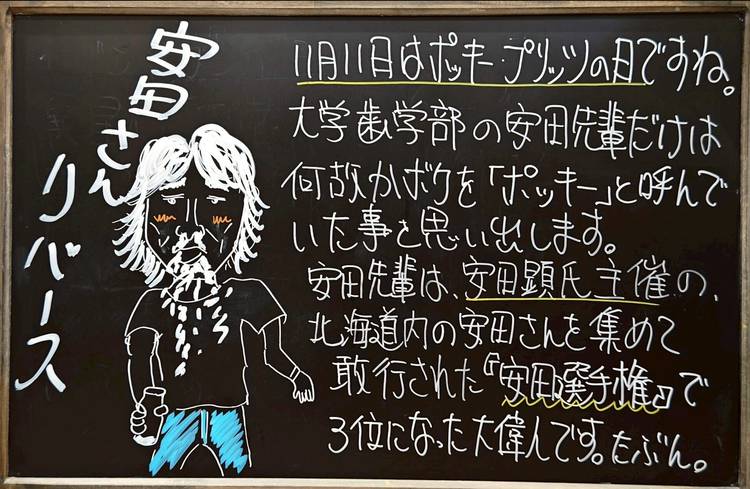 安田さん
リバース
11月11日はポッキー・プリッツの日ですね。
大学歯学部の安田先輩だけは
何故かボクを「ポッキー」と呼んで
いた事を思い出します。
安田先輩は、安田顕氏主催の、
北海道内の安田さんを集めて
敢行された『安田選手権』で
3位になった大偉人です。たぶん。